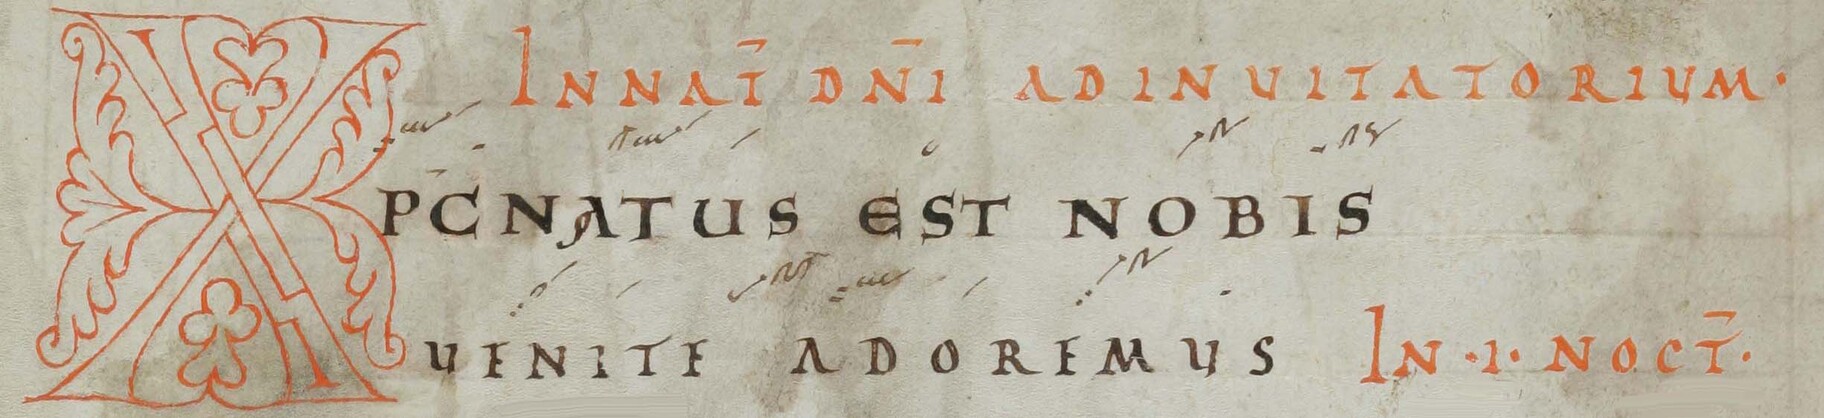 IN NAT̄ DN̄I AD INUITATORIUM·
XPC̄ NATUS EST NOBIS
UENITE ADOREMUS IN ·I· NOCT̄·